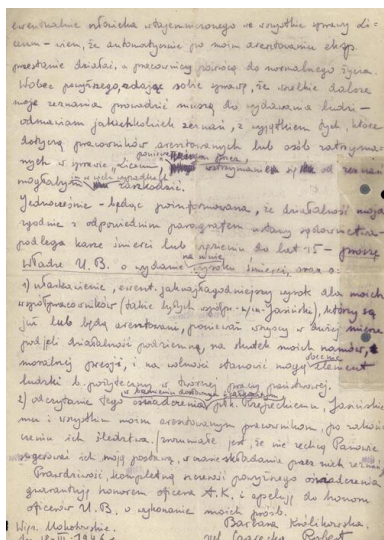 ewentualnie włącznika wtajemniczonego we wszystkie sprawy Li-
ceum – wiem, że automatycznie po moim aresztowaniu eksp.
przestanie działać, a pracownicy powrócą do normalnego życia.
Wobec powyższego, zdając sobie sprawę, że wszelkie dalsze
moje zeznania prowadzić muszą do wydawania ludzi –
odmawiam jakichkolwiek zeznań, z wyjątkiem tych, które
dotyczą pracowników aresztowanych lub osób zatrzyma-
nych w sprawie "Liceum"
ponieważ
w ich wypadkach wstrzymanie się od zeznań
mogłabym zaszkodzić.
Jednocześnie – będąc poinformowana, że działalność moja
zgodnie z odpowiednim paragrafem ustawy
podlega karze śmierci lub więzieniu do lat 15 – proszę
Władze U.B. o wydanie na mnie wyroku śmierci, oraz o:
1) ułaskawienie, ewent. jaknajłagodniejszy wyrok dla moich
współpracowników (także byłych Jasiński), którzy są
już lub będą aresztowani, ponieważ wszyscy w dużej mierze
podjęli działalność podziemną, na skutek moich namów, z
moralnej presji, i na wolności stanowić mogą element
ludzki b. pożyteczny w twórczej pracy państwowej.
2) odczytanie tego oświadczenia płk. Rzepeckiemu, Jasińskie-
mu i wszystkim moim aresztowanym pracownikom, po zakoń-
czeniu ich śledztwa, zrozumiałe jest, że nie zechcą Panowie
sugerować ich moją postawą, w czasie składania przez nich zeznań.
Prawdziwość, kompletną szczerość powyższego oświadczenia
gwarantuję honorem oficera A.K. i apeluję do honoru
oficerów U.B. o wykonanie moich próśb.
Więz. Mokotowskie. Barbara Królikowska.
1946